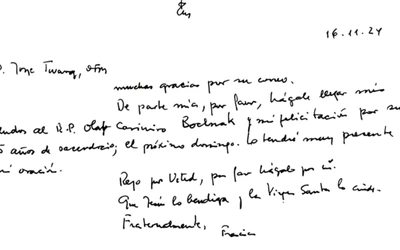 16.11.24
P. Jorge Twarog, ofm
muchas gracias por su correo.
De parte mía, por favor, hágale llegar mis
ludos al R.P. Olaf Casimiro Bochnak y mi felicitación por su
5 años de sacerdocio, el próximo domingo. Lo tendré muy presente
mi oración.
Rezo por Usted, por favor hágalo por mí.
Que Jesús lo bendiga y la Virgen Santa lo cuide.
Fraternalmente,